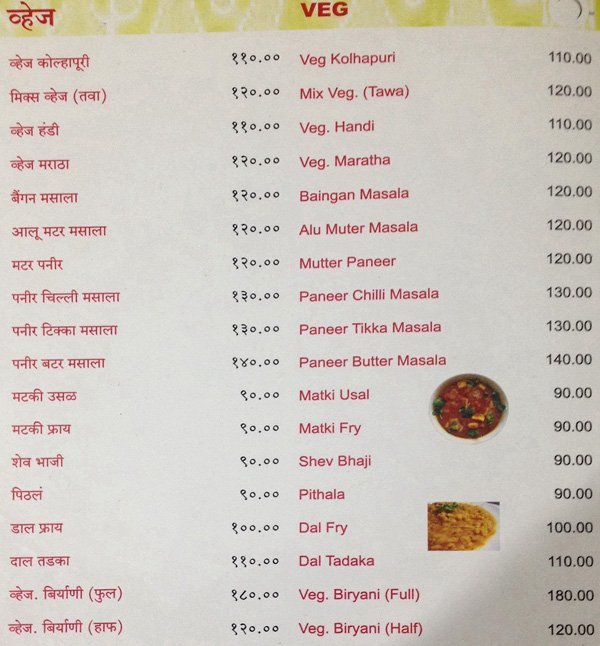 व्हेज VEG
व्हेज कोल्हापूरी ११०.०० Veg Kolhapuri 110.00
मिक्स व्हेज (तवा) १२०.०० Mix Veg. (Tawa) 120.00
व्हेज हंडी ११०.०० Veg. Handi 110.00
व्हेज मराठा १२०.०० Veg. Maratha 120.00
बैंगन मसाला १२०.०० Baingan Masala 120.00
आलू मटर मसाला १२०.०० Alu Muter Masala 120.00
मटर पनीर १२०.०० Mutter Paneer 120.00
पनीर चिल्ली मसाला १३०.०० Paneer Chilli Masala 130.00
पनीर टिक्का मसाला १३०.०० Paneer Tikka Masala 130.00
पनीर बटर मसाला १४०.०० Paneer Butter Masala 140.00
मटकी उसळ ९०.०० Matki Usal 90.00
मटकी फ्राय ९०.०० Matki Fry 90.00
शेव भाजी ९०.०० Shev Bhaji 90.00
पिठलं ९०.०० Pithala 90.00
डाल फ्राय १००.०० Dal Fry 100.00
दाल तडका ११०.०० Dal Tadaka 110.00
व्हेज. बिर्याणी (फुल) १८०.०० Veg. Biryani (Full) 180.00
व्हेज. बिर्याणी (हाफ) १२०.०० Veg. Biryani (Half) 120.00